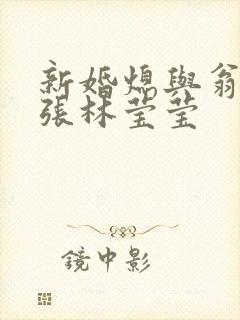 新婚熄與翁
張林莹莹
鏡中影